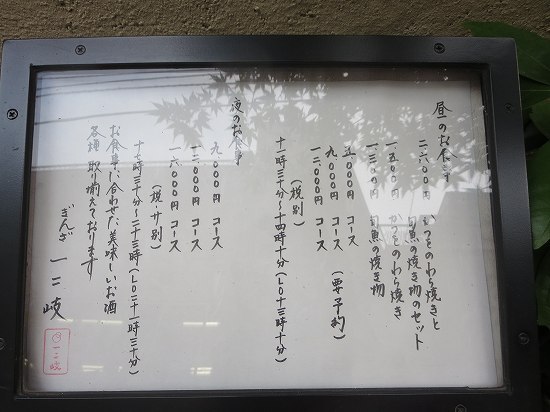 昼のお食事
二、六〇〇円 かつをのわら焼きと
旬魚の焼き物のセット
一、五〇〇円 かつをのわら焼き
一、三〇〇円 旬魚の焼き物
五、〇〇〇円 コース
九、〇〇〇円 コース (要予約)
一二、〇〇〇円 コース
(税別)
十一時三十分〜十四時十分(LO十三時十分)
夜のお食事
九、〇〇〇円 コース
一二、〇〇〇円 コース
一六、〇〇〇円 コース
(税・サ別)
十七時三十分〜二十三時(LO二十一時三十分)
お食事に合わせた美味しいお酒
各種取り揃えております
ぎんざ 一二岐
一二岐